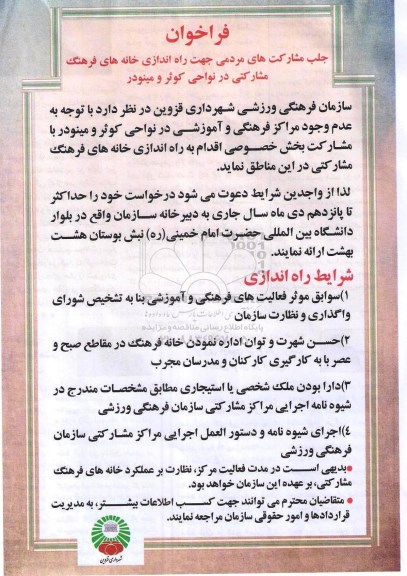 فراخوان
جلب مشارکت های مردمی جهت راه اندازی خانه های فرهنگ
مشارکتی در نواحی کوثر و مینودر
سازمان فرهنگی ورزشی شهرداری قزوین در نظر دارد با توجه به
عدم وجود مراکز فرهنگی و آموزشی در نواحی کوثر و مینودر با
مشارکت بخش خصوصی اقدام به راه اندازی خانه های فرهنگ
مشارکتی در این مناطق نماید.
لذا از واجدین شرایط دعوت می شود درخواست خود را حداکثر
تا پانزدهم دی ماه سال جاری به دبیرخانه سازمان واقع در بلوار
دانشگاه بین المللی حضرت امام خمینی(ره) نبش بوستان هشت
بهشت ارائه نمایند.
شرایط راه اندازی
۱)سوابق موثر فعالیت های فرهنگی و آموزشی بنا به تشخیص شورای
واگذاری و نظارت سازمان
پایگاه اطلاع رسانی مناقصه و مزایده
۲)حسن شهرت و توان اداره نمودن خانه فرهنگ در مقاطع صبح و
عصر با به کارگیری کارکنان و مدرسان مجرب
۳)دارا بودن ملک شخصی یا استیجاری مطابق مشخصات مندرج در
شیوه نامه اجرایی مراکز مشارکتی سازمان فرهنگی ورزشی
۴)اجرای شیوه نامه و دستور العمل اجرایی مراکز مشارکتی سازمان
فرهنگی ورزشی
● بدیهی است در مدت فعالیت مرکز، نظارت بر عملکرد خانه های فرهنگ
مشارکتی، بر عهده این سازمان خواهد بود.
● متقاضیان محترم می توانند جهت کسب اطلاعات بیشتر، به مدیریت
قراردادها و امور حقوقی سازمان مراجعه نمایند.
شهرداری قزوین